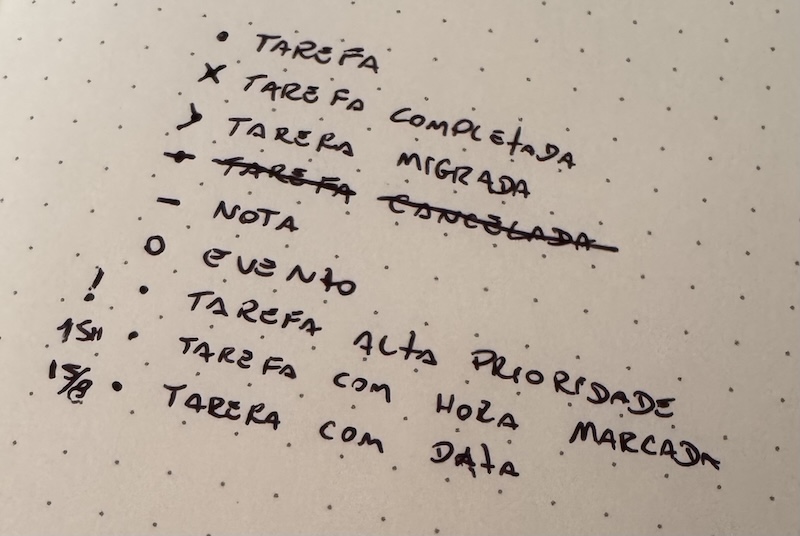 • TAREFA
× TAREFA COMPLETADA
> TAREFA MIGRADA
• TAREFA CANCELADA
– NOTA
O EVENTO
! • TAREFA ALTA PRIORIDADE
15H • TAREFA COM HORA MARCADA
15/8 • TAREFA COM DATA